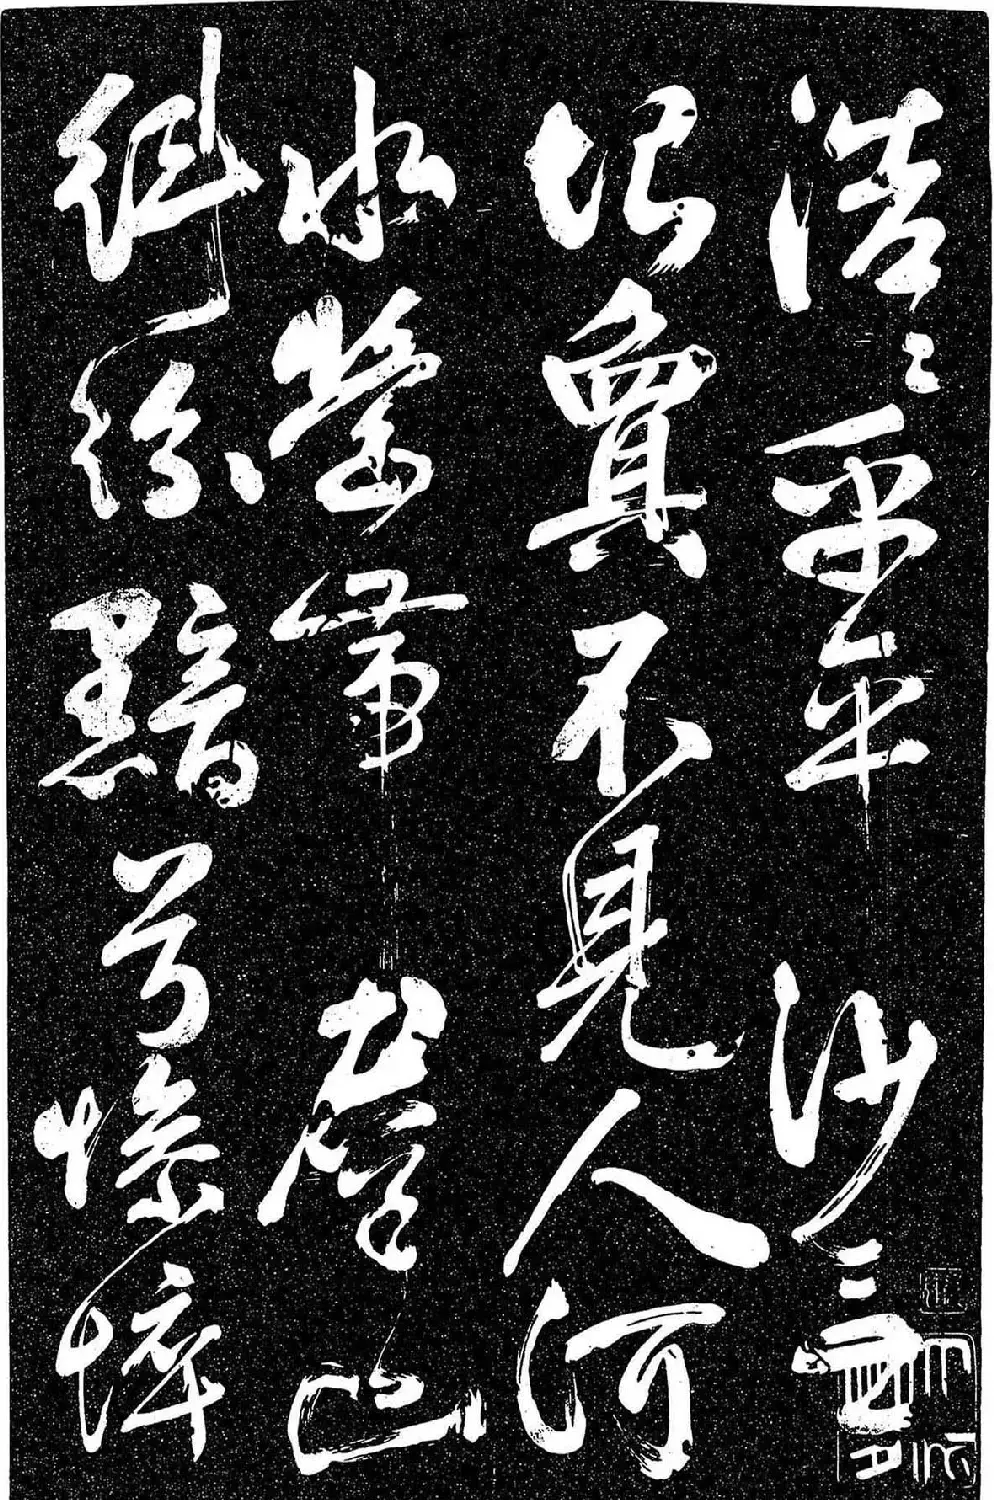 浩〻乎平沙無
垠夐不見人河
水縈帶羣山
糾紛黯兮慘悴